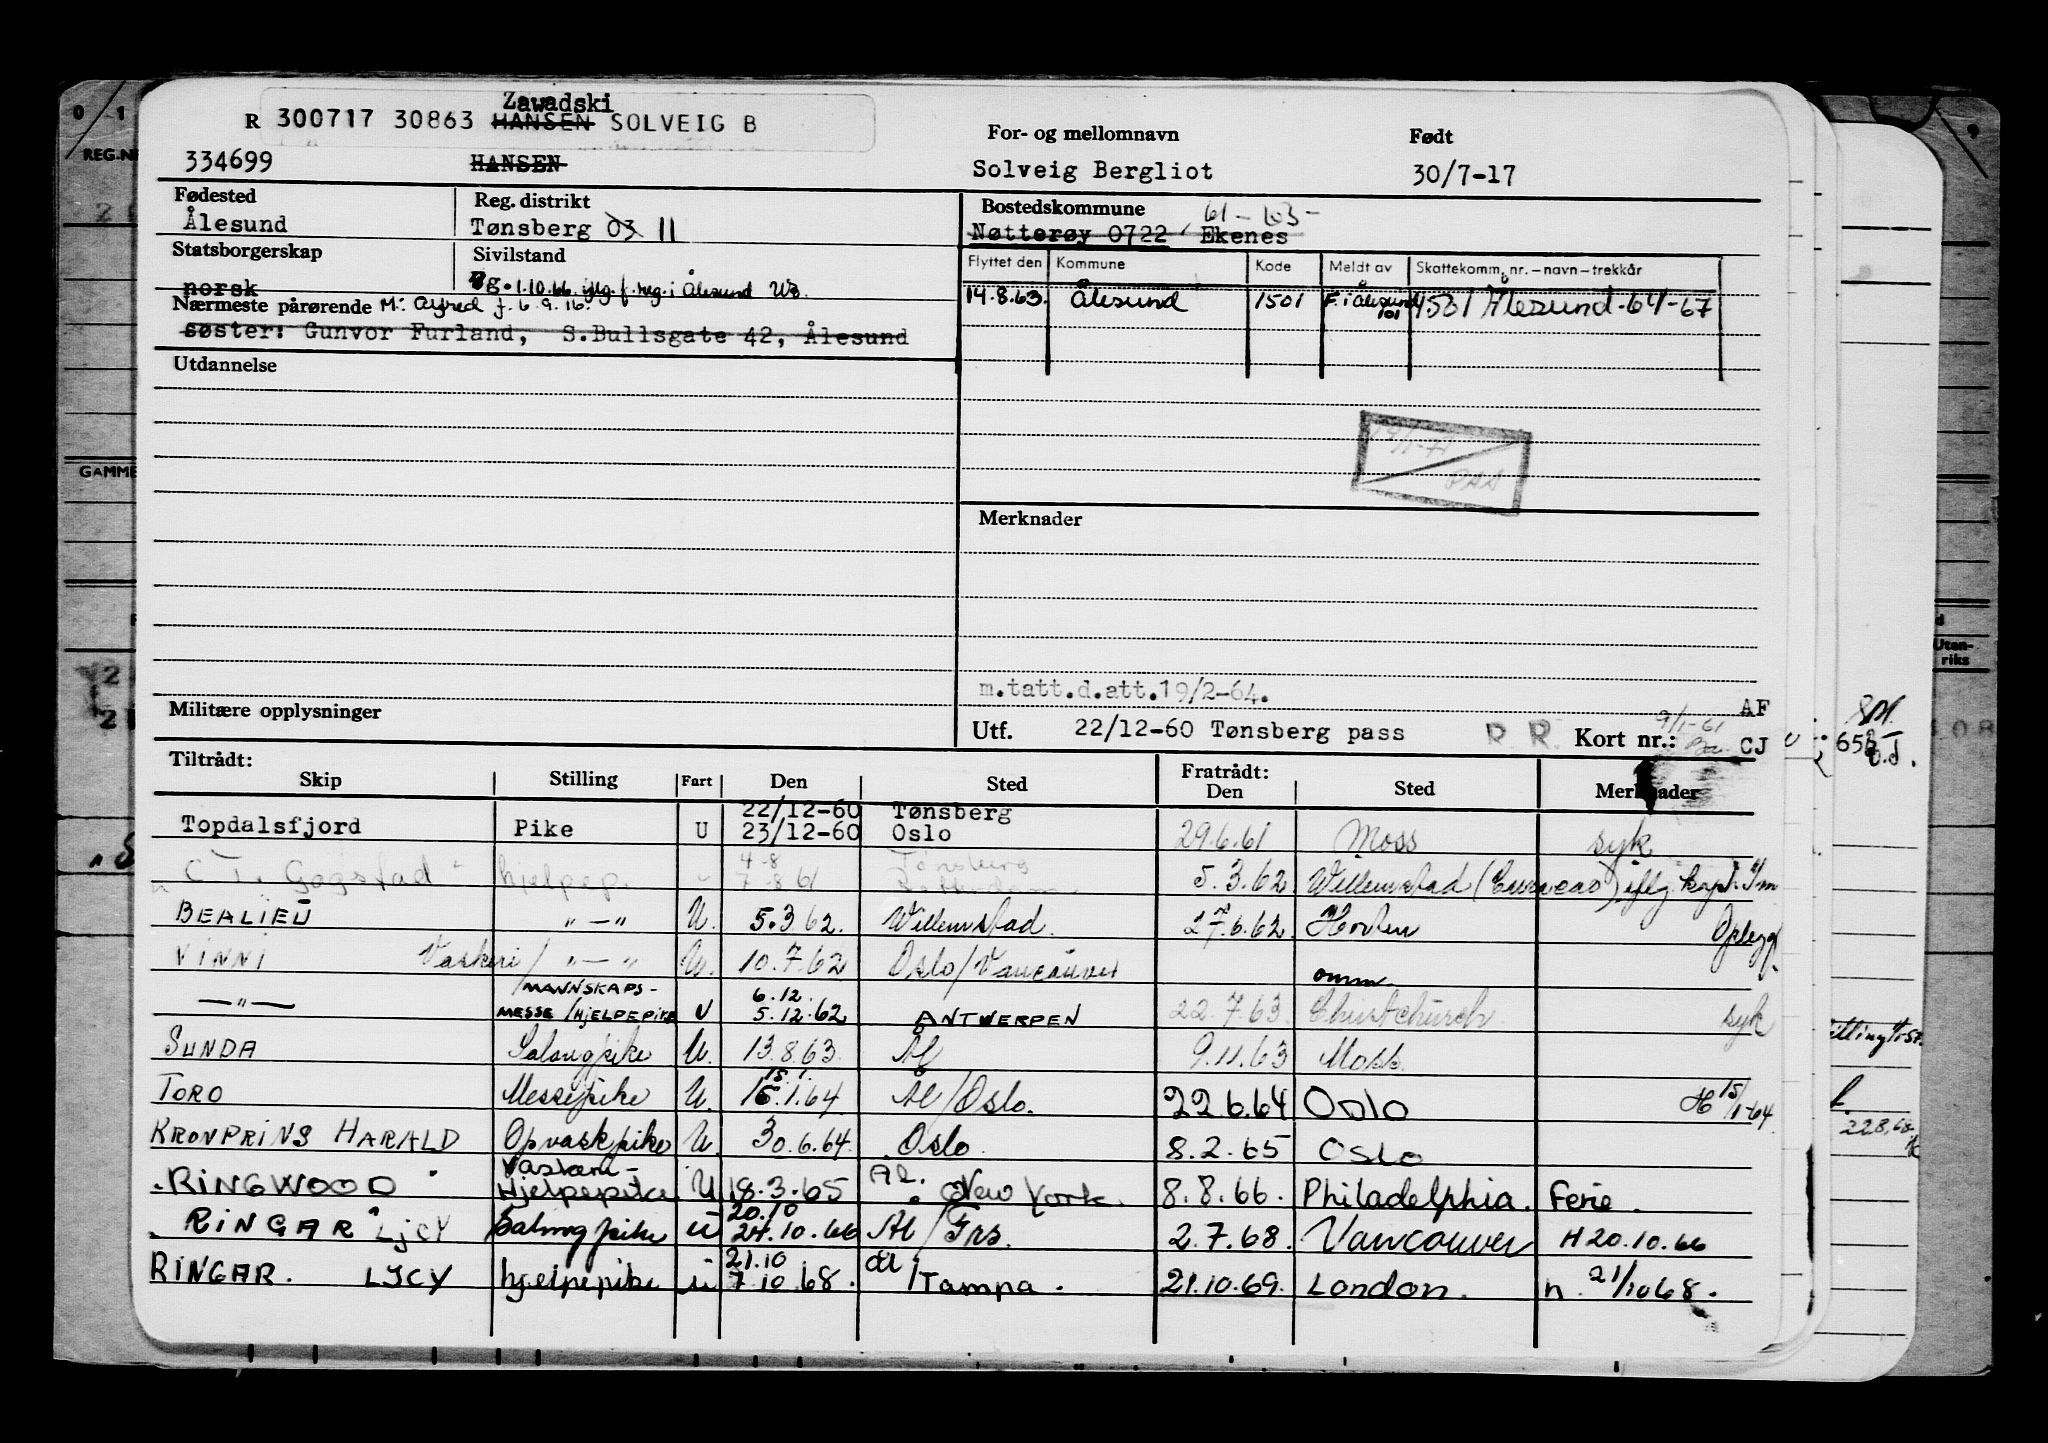 Zawadski
R 300717 30863 HANSEN SOLVEIG B
334699 HANSEN
For- og mellomnavn
Solveig Bergliot
Født
30/7-17
Fødested
Ålesund
Reg. distrikt
Tønsberg 03 11
Bostedskommune 61-103-
Nøtterøy 0722 Ekenes
Statsborgerskap
norsk
Sivilstand
g. 1.10.66 iflg. f.reg. i Ålesund
Flyttet den Kommune Kode Meldt av Skattekomm. nr. – navn – trekkår
14.8.63. Ålesund 1501 F. i Ålesund 101 1501 Ålesund-64-67
Nærmeste pårørende M: Alfred f. 6.9.16.
søster: Gunvor Furland, S.Bullsgate 42, Ålesund
Utdannelse
Merknader
m.tatt.d.att.19/2-64.
Militære opplysninger
AF
Utf. 22/12-60 Tønsberg pass R R Kort nr.: 9/1-61 CJ
Tiltrådt:
Skip Stilling Fart Den Sted
Fratrådt:
Den Sted Merknader
22/12-60 Tønsberg
Topdalsfjord Pike U 23/12-60 Oslo 29.6.61 Moss syk
4-8 Tønsberg
C.T. Gogstad hjelpep. " 7-8 61 Rotterdam 5.3.62 Willemstad (Curacao) iflg. kapt.
BEALIEU "—" U. 5.3.62. Willemstad. 27.6.62. Horten Oplegg
VINNI Vaskeri/ "—" U. 10.7.62 Oslo/Vancouver
—"— MANNSKAPS-
MESSE/HJELPEPIKE U 6.12.
5.12.62 ANTWERPEN omm.
22.7.63. Christchurch syk
SUNDA Salongpike U. 13.8.63. Ål 9.11.63 Moss.
TORO Messepike U. 15.1.
15.1.64 Ål/Oslo. 22.6.64 Oslo H 15/1-64
KRONPRINS HARALD Opvaskpike U. 30.6.64. Oslo. 8.2.65 Oslo
RINGWOOD Vaskeri-
Hjelpepike U 18.3.65 Ål. New York. 8.8.66. Philadelphia. Ferie.
RINGAR LJCY Salongpike U 20.10
24.10.66 Ål/Frs. 2.7.68. Vancouver H 20.10.66
RINGAR. LJCY hjelpepike U 21.10
7.10.68. Ål/Tampa. 21.10.69. London. H. 21/10 68.